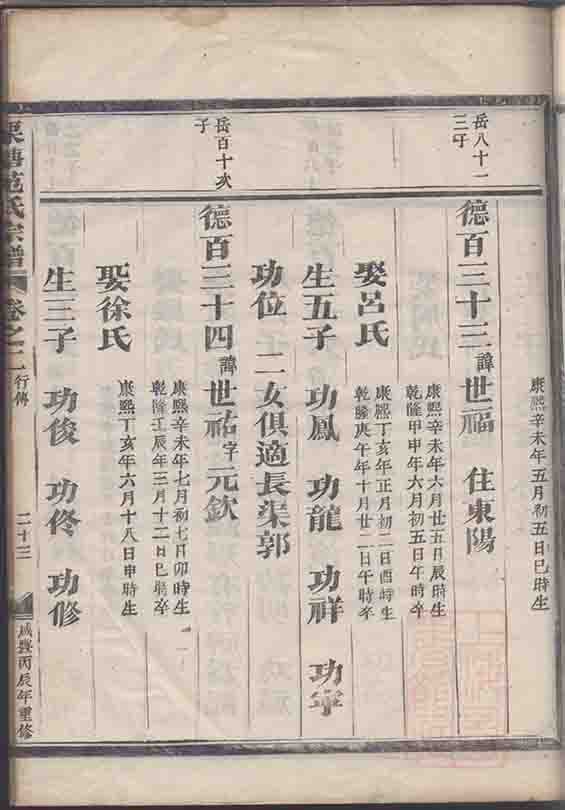 康熙辛未年五月初五日巳時生
岳八十一
三子
德百三十三諱世福 住東陽
康熙辛未年六月廿五日辰時生
乾隆甲申年六月初五日午時卒
娶呂氏
康熙丁亥年正月初二日酉時生
乾隆庚午年十月廿二日午時卒
生五子 功鳳 功龍 功祥 功寧
功位 二女俱適長渠郭
岳百十次
子
德百三十四諱世祐字元欽
康熙辛未年七月初七日卯時生
乾隆壬辰年三月十二日巳時卒
娶徐氏
康熙丁亥年六月十八日申時生
生三子 功俊 功佟 功修
范氏宗譜 卷之二 行傳 二十三 咸豐丙辰年重修